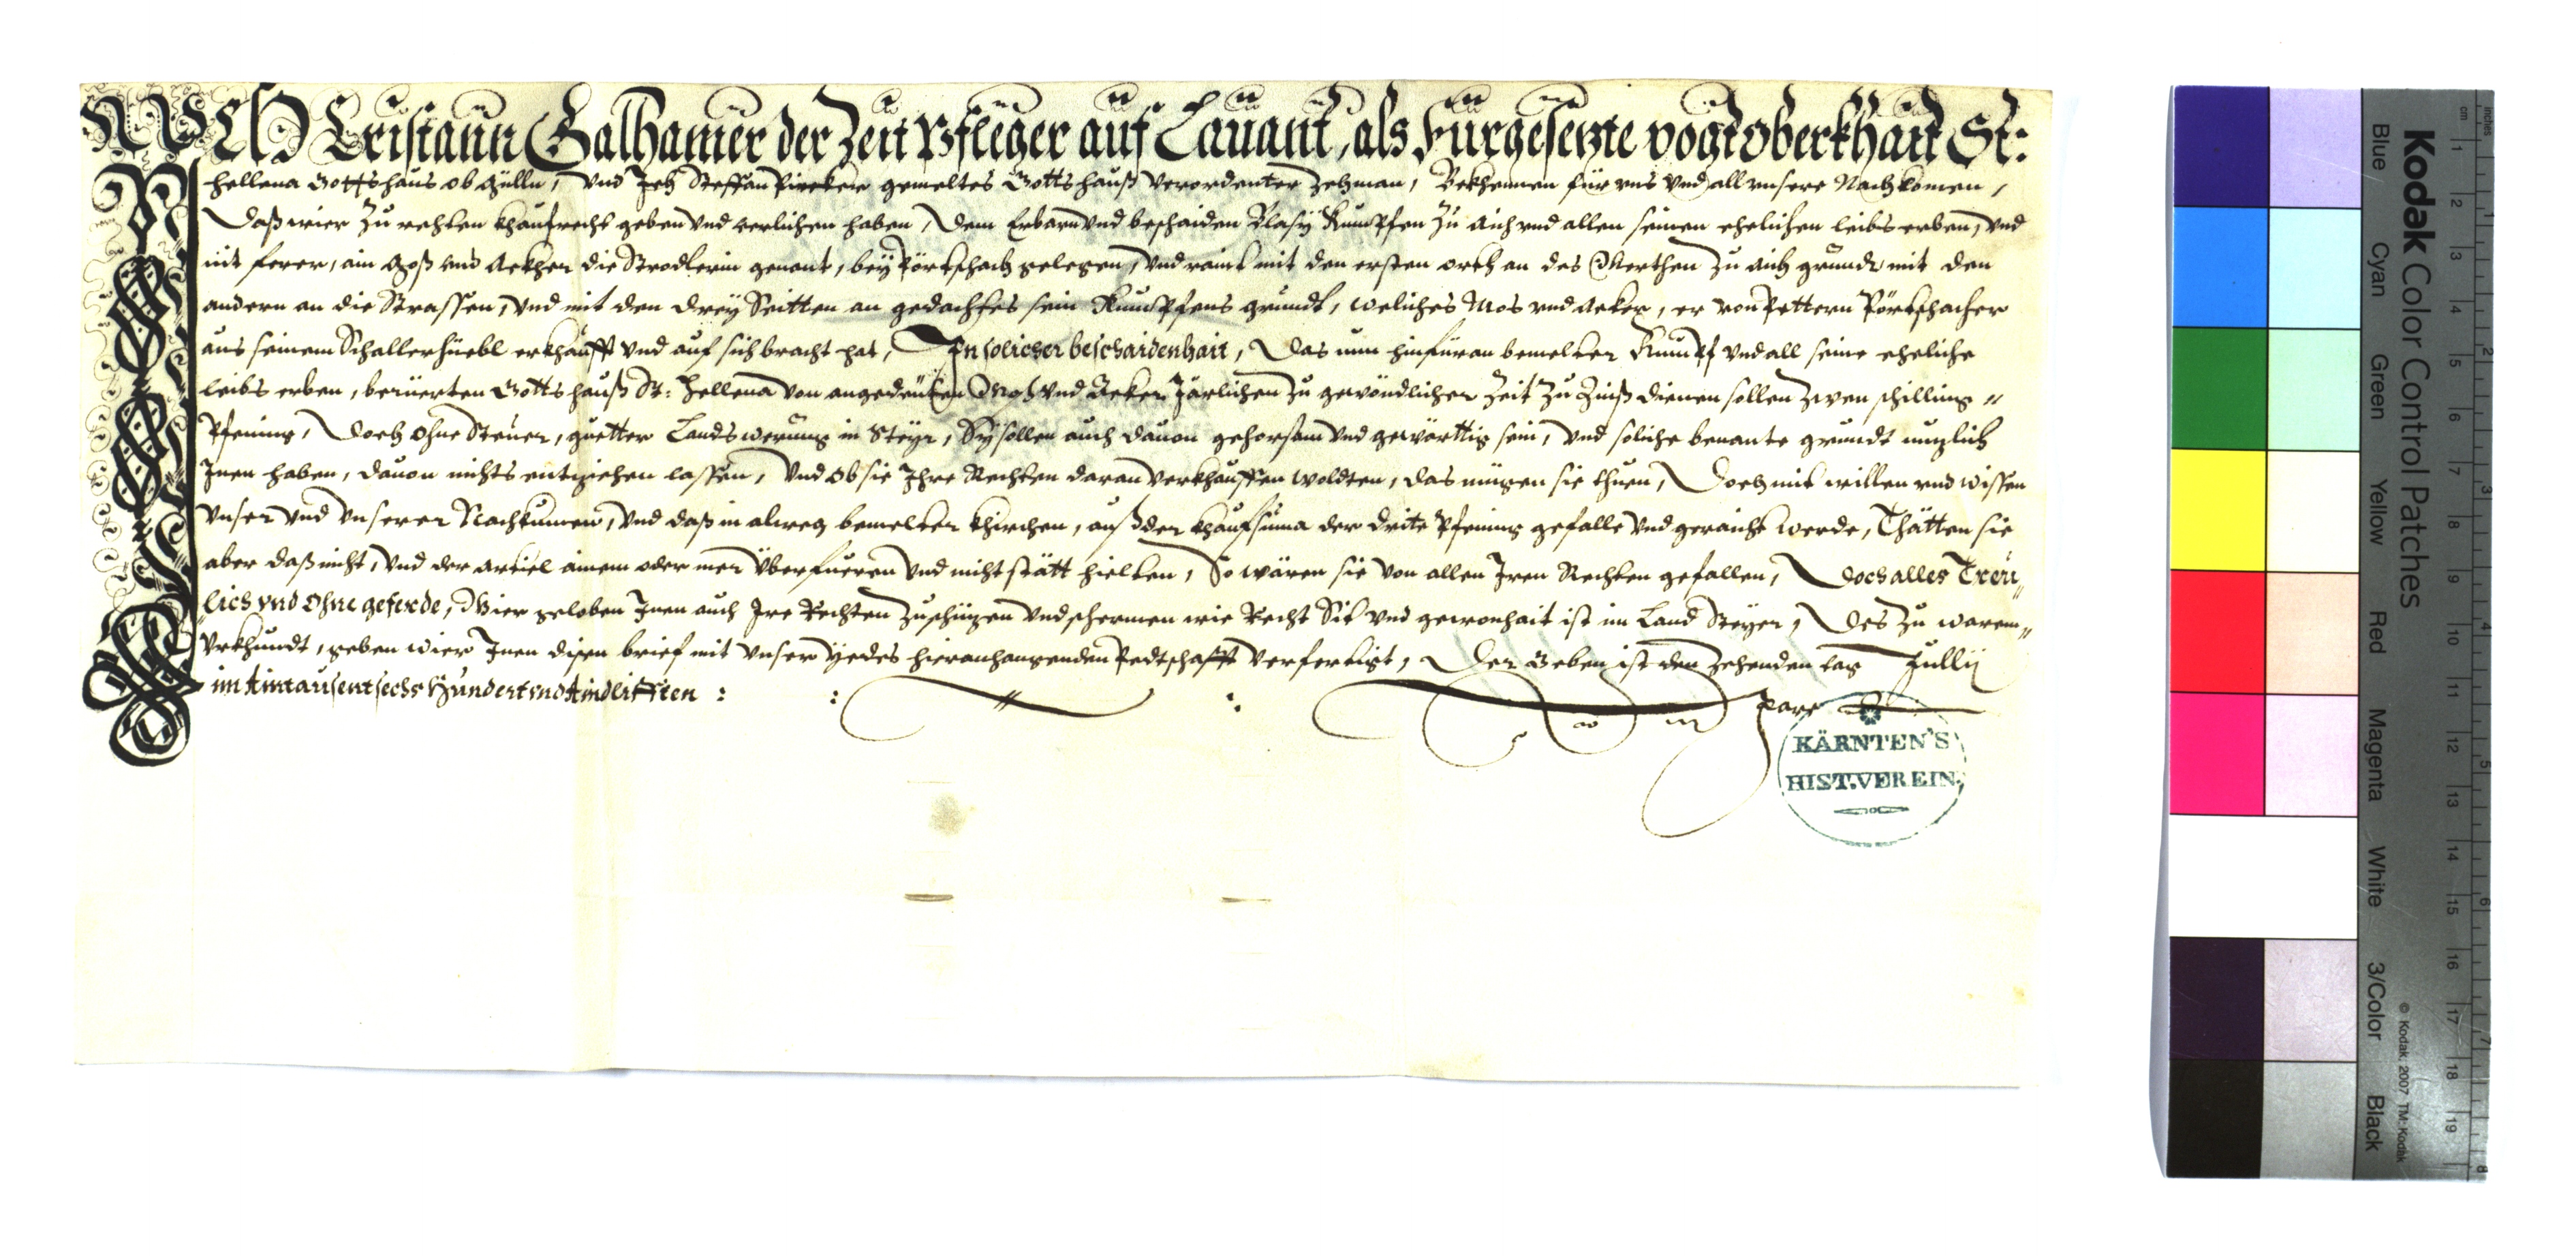 ICH Cristaun Galhamer der Zeit Pfleger auf Lauant, als Fürgesetzte vogtoberkhait St:
hellena Gottshaus ob Gülln, Vnd Ich Steffan gemeltes Gottshauß Verordenter Zehman, Bekhennen für vns Vnd all vnsere Nachkomen,
Daß wier Zu rechten khaufrecht geben Vnd verlichen haben, Dem Erbarn Vnd beschaiden Blasy Kumpfen Zu Aich vnd allen seinen ehelichen leibs erben, Vnd
nit ferer, ain Moß vnd Ackher die Strodlerin genant, bey Pörtschach gelegen, Vnd raint mit den ersten orth an des Merthen Zu Aich grundt mit den
andern an die Strassen, Vnd mit den drey Seitten an gedachtes sein Kumpfens grundt, weliches Mos vnd Acker, er von Pettern Pörtschacher
aus seinem Schallerhuebl erkhaufft Vnd auf sich bracht hat, In solicher beschaidenhait, Das nun hinfüran bemelter Kumpf Vnd all seine eheliche
leibs erben, berüerten Gottshauß St: Hellena Von angedeuten Moß Vnd Acker Järlichen Zu gewöndlicher Zeit Zu Zinß dienen sollen Zwen schilling
Pfening, Doch ohne Steuer, guetter Landswerung in Steyr, Sy sollen auch dauon gehorsam Vnd gewärttig sein, Vnd soliche benante grundt nuzlich
Inen haben, dauon nichts entziehen lassen, Vnd ob sie Ihre Rechten daran Verkhauffen woldten, das mügen sie thuen, Doch mit willen vnd wissen
Vnser Vnd Vnserer Nachkumen, Vnd daß in alweg bemelter khirchen, auß der khaufsuma der drite Pfening gefalle Vnd geraicht werde, Thätten sie
aber daß nicht, Vnd der artiel ainem oder mer Überfueren Vnd nicht stätt hielten, So wären sie Von allen Iren Rechten gefallen, Doch alles Treu„
„lich vnd Ohne geferde, Wier geloben Inen auch Ire Rechten Zuschüzen Vnd schermen wie Recht Sit Vnd gewonhait ist im Land Steyer, Des Zu warem„
Vrkhundt, geben wier Inen disen brief mit Vnser Yedes hieranhangenden Pedtschafft Verfertigt, Der Geben ist den Zehenden tag Jullÿ
im Aintausent sechs Hundert vnd Aindlifften :
KÄRNTEN'S
HIST.VEREIN.
Kodak Color Control Patches
Blue Cyan Green Yellow Red Magenta White 3/Color Black
© Kodak, 2007 TM: Kodak
inches 1 2 3 4 5 6 7 8
cm 1 2 3 4 5 6 7 8 9 10 11 12 13 14 15 16 17 18 19